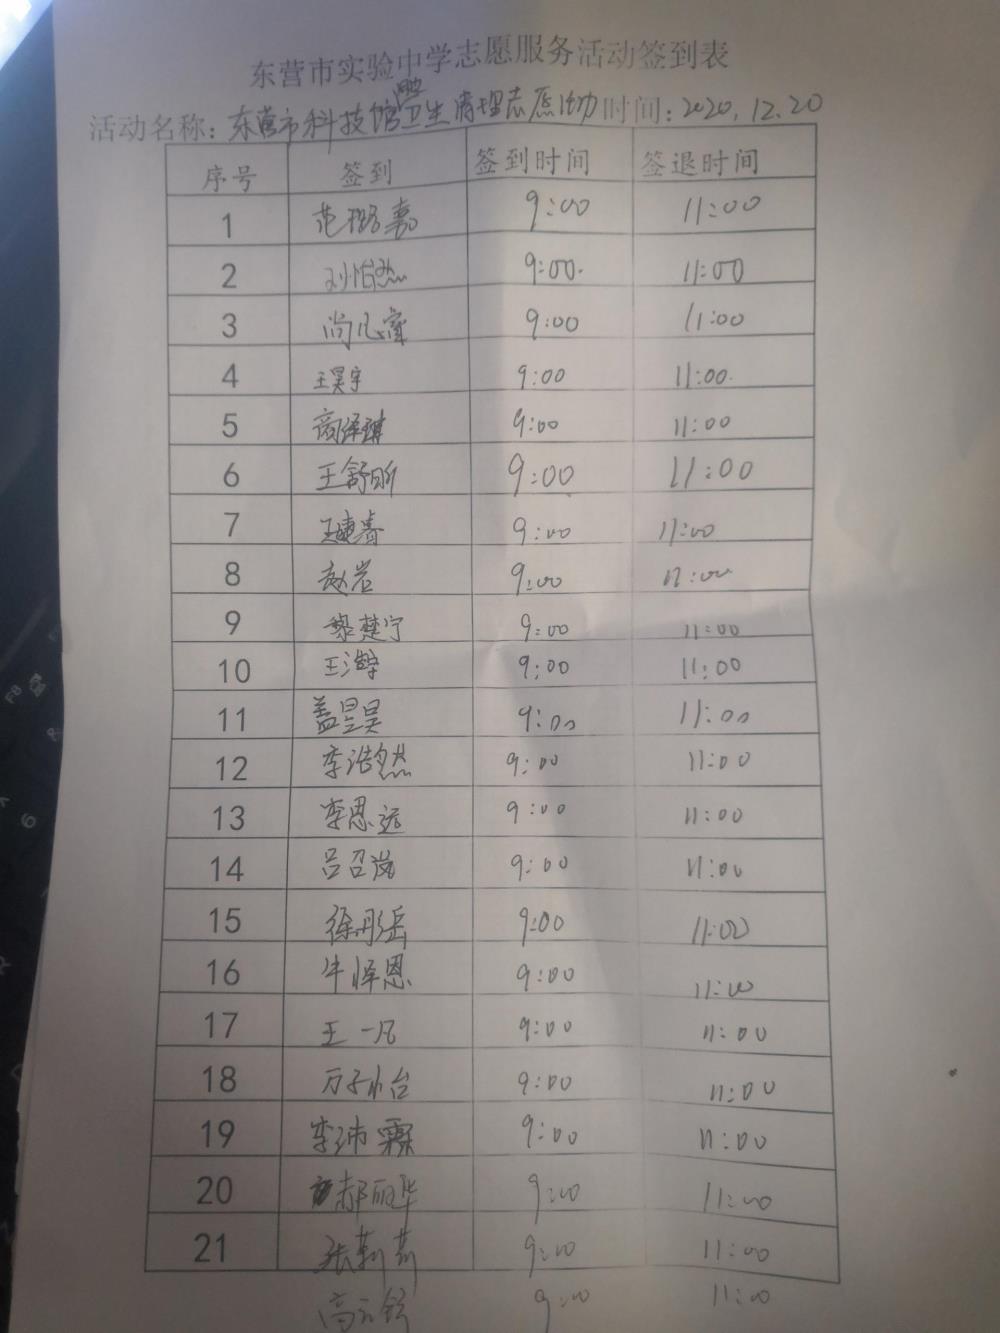 东营市实验中学志愿服务活动签到表
活动名称：东营市科技馆卫生清理志愿活动 时间：2020.12.20
序号 签到 签到时间 签退时间
1 范 嘉 9:00 11:00
2 刘怡然 9:00. 11:00
3 尚凡 9:00 11:00
4 王昊宇 9:00 11:00.
5 商泽琪 9:00 11:00
6 王舒昕 9:00 11:00
7 王 9:00 11:00
8 赵岩 9:00 11:00
9 黎楚宁 9:00 11:00
10 王 9:00 11:00
11 盖昱昊 9:00 11:00
12 李浩然 9:00 11:00
13 李思远 9:00 11:00
14 吕召岚 9:00 11:00
15 徐彤岳 9:00 11:00
16 牛泽恩 9:00 11:00
17 王一凡 9:00 11:00
18 万子 9:00 11:00
19 李沛霖 9:00 11:00
20 郝丽华 9:00 11:00
21 张莉莉 9:00 11:00
高 舒 9:00 11:00